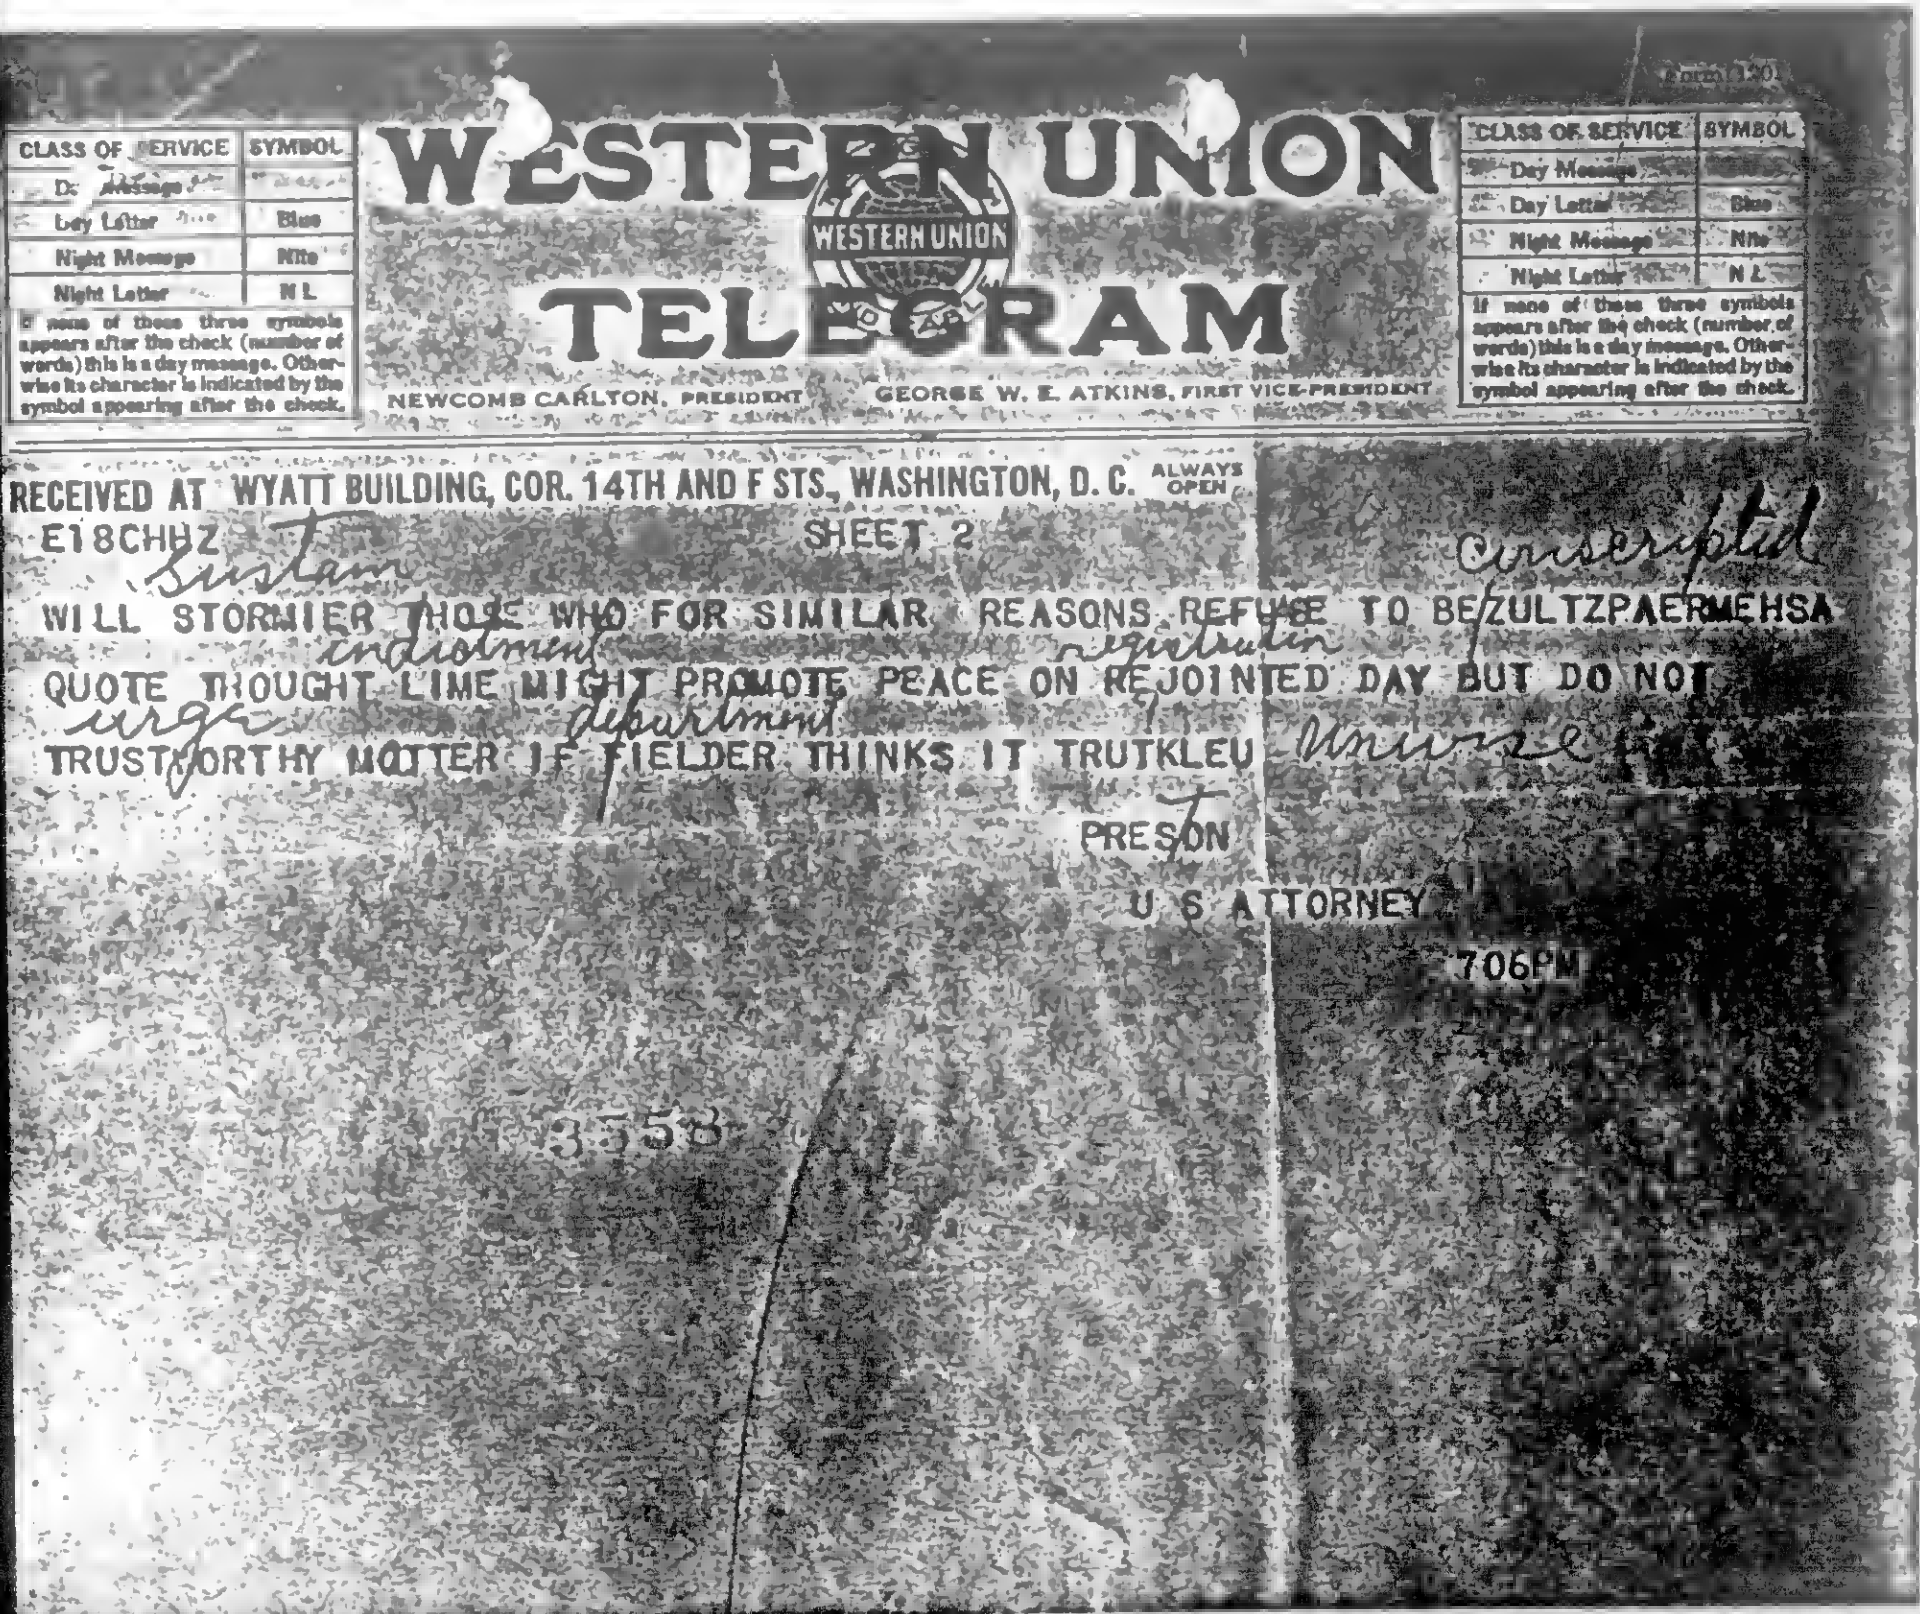 Form 1201
CLASS OF SERVICE SYMBOL
Day Message
Day Letter Blue
Night Message Nite
Night Letter N L
If none of these three symbols
appears after the check (number of
words) this is a day message. Other-
wise its character is indicated by the
symbol appearing after the check.
WESTERN UNION
WESTERN UNION
TELEGRAM
NEWCOMB CARLTON, PRESIDENT GEORGE W. E. ATKINS, FIRST VICE-PRESIDENT
CLASS OF SERVICE SYMBOL
Day Message
Day Letter Blue
Night Message Nite
Night Letter N L
If none of these three symbols
appears after the check (number of
words) this is a day message. Other-
wise its character is indicated by the
symbol appearing after the check.
RECEIVED AT WYATT BUILDING, COR. 14TH AND F STS., WASHINGTON, D. C. ALWAYS OPEN
E18CHHZ SHEET 2
sustain conscripted
WILL STORMIER THOSE WHO FOR SIMILAR REASONS REFUSE TO BEZULTZPAERMEHSA
indictment registration
QUOTE THOUGHT LIME MIGHT PROMOTE PEACE ON REJOINTED DAY BUT DO NOT
urge department
TRUSTYORTHY MOTTER IF FIELDER THINKS IT TRUTKLEU unwise
PRESTON
U S ATTORNEY
706PM
3558